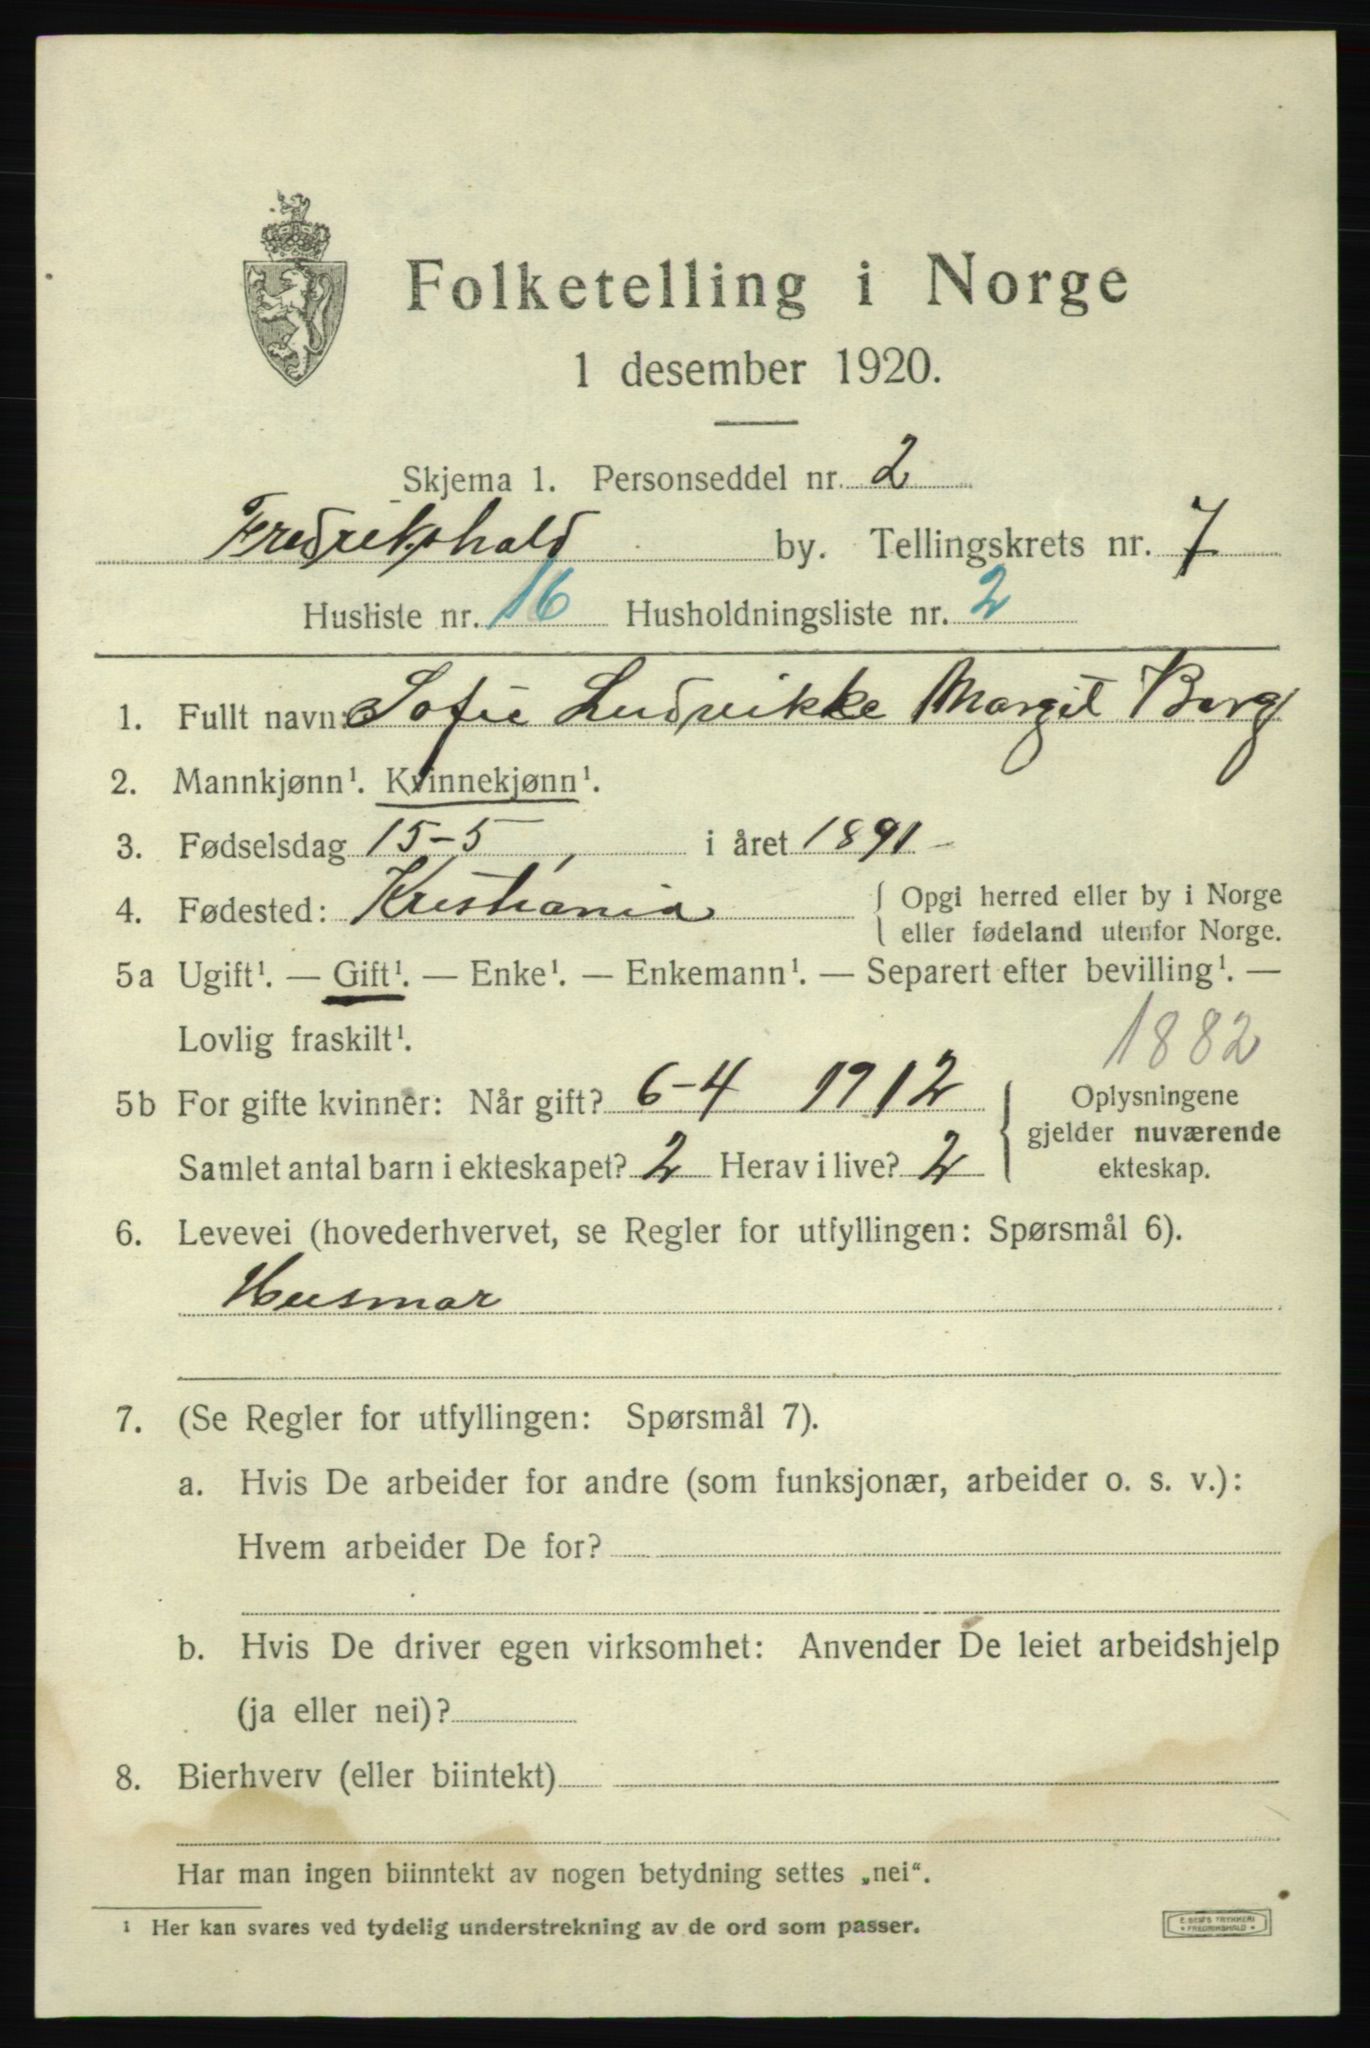 Folketelling i Norge
1 desember 1920.
Skjema 1. Personseddel nr. 2
Fredrikshald by. Tellingskrets nr. 7
Husliste nr. 16 Husholdningsliste nr. 2
1. Fullt navn: Sofie Ludvikke Margit Berg
2. Mannkjønn¹. Kvinnekjønn¹.
3. Fødselsdag 15-5 i året 1891
4. Fødested: Kristiania { Opgi herred eller by i Norge
eller fødeland utenfor Norge.
5a Ugift¹. — Gift¹. — Enke¹. — Enkemann¹. — Separert efter bevilling¹. —
Lovlig fraskilt¹.
1882
5b For gifte kvinner: Når gift? 6-4 1912 { Oplysningene
gjelder nuværende
Samlet antal barn i ekteskapet? 2 Herav i live? 2 ekteskap.
6. Levevei (hovederhvervet, se Regler for utfyllingen: Spørsmål 6).
Husmor
7. (Se Regler for utfyllingen: Spørsmål 7).
a. Hvis De arbeider for andre (som funksjonær, arbeider o. s. v.):
Hvem arbeider De for?
b. Hvis De driver egen virksomhet: Anvender De leiet arbeidshjelp
(ja eller nei)?
8. Bierhverv (eller biintekt)
Har man ingen biinntekt av nogen betydning settes „nei“.
¹ Her kan svares ved tydelig understrekning av de ord som passer.
E. SEM'S TRYKKERI
* FREDRIKSHALD *